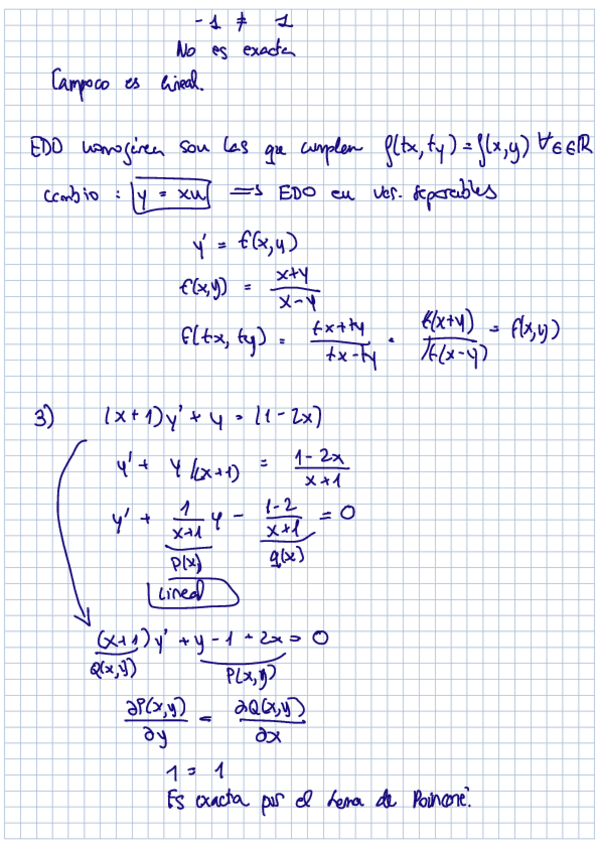 -1 ≠ 1
No es exacta
Tampoco es lineal.
EDO homogénea son las que cumplen f(tx, ty) = f(x,y) ∀t∈ℝ
cambio : y = xu ⟹ EDO en var. separables
y' = f(x,y)
f(x,y) = (x+y)/(x-y)
f(tx, ty) = (tx+ty)/(tx-ty) = t(x+y)/t(x-y) = f(x,y)
3) (x+1)y' + y = (1-2x)
y' + y/(x+1) = (1-2x)/(x+1)
y' + 1/(x+1) y - (1-2)/(x+1) = 0
p(x) q(x)
Lineal
(x+1)y' + y - 1 + 2x = 0
Q(x,y) P(x,y)
∂P(x,y)/∂y = ∂Q(x,y)/∂x
1 = 1
Es exacta por el lema de Poincaré.